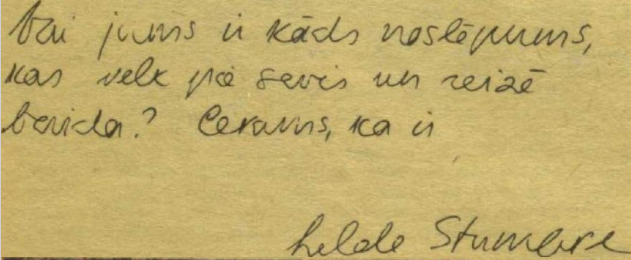 Vai jums ir kāds noslēpums,
kas velk pie sevis un reizē
baida? Cerams, ka ir
Lelde Stumbre